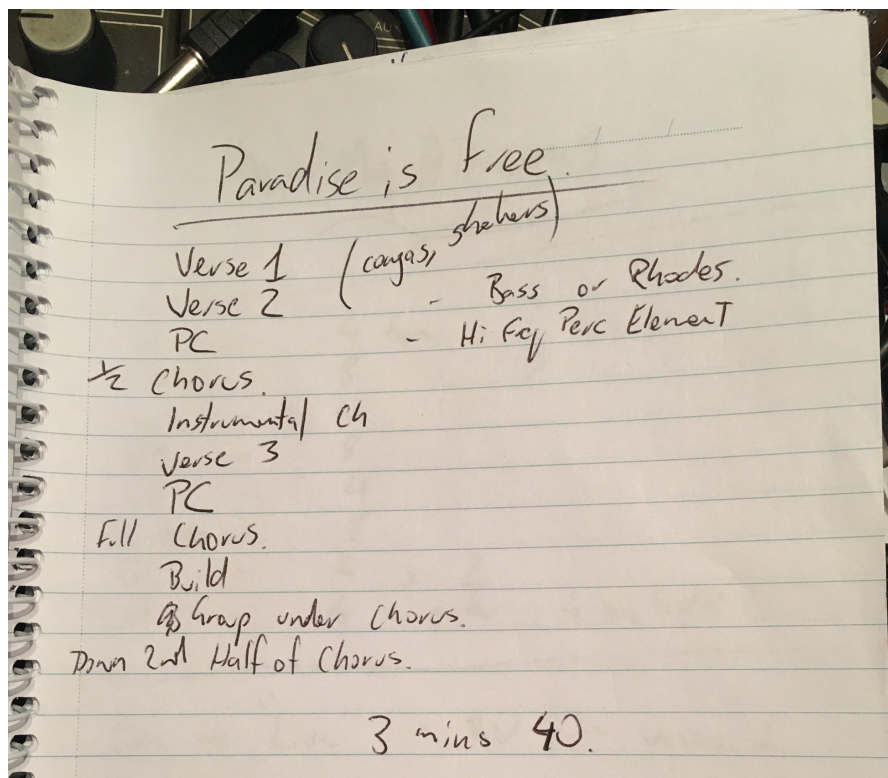 AUX
Paradise is free.
Verse 1 (congas, shakers)
Verse 2 - Bass or Rhodes.
PC - Hi Freq Perc Element
1/2 Chorus.
Instrumental Ch
Verse 3
PC
Full Chorus.
Build
Group under Chorus.
Down 2nd Half of Chorus.
3 mins 40.